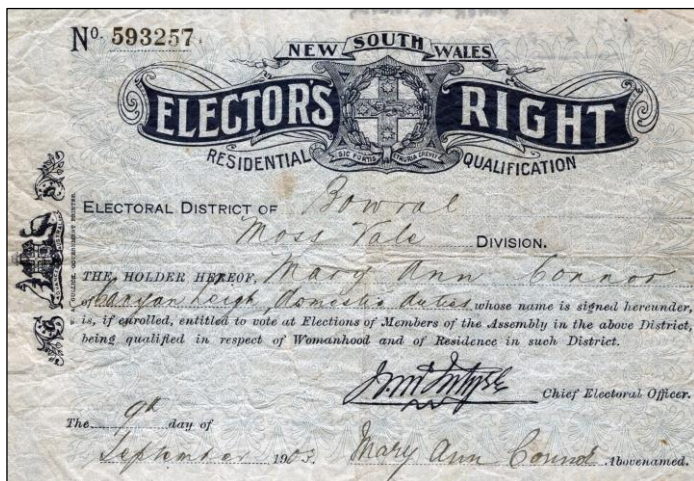 No. 593257.
NEW SOUTH WALES
ELECTOR'S RIGHT
SIC FORTIS ETRURIA CREVIT
RESIDENTIAL QUALIFICATION
ELECTORAL DISTRICT OF Bowral
Moss Vale DIVISION.
THE HOLDER HEREOF, Mary Ann Connor
of leigh, domestic duties whose name is signed hereunder,
is, if enrolled, entitled to vote at Elections of Members of the Assembly in the above District,
being qualified in respect of Womanhood and of Residence in such District.
Chief Electoral Officer.
The 9th day of
September 1903. Mary Ann Connor Abovenamed.